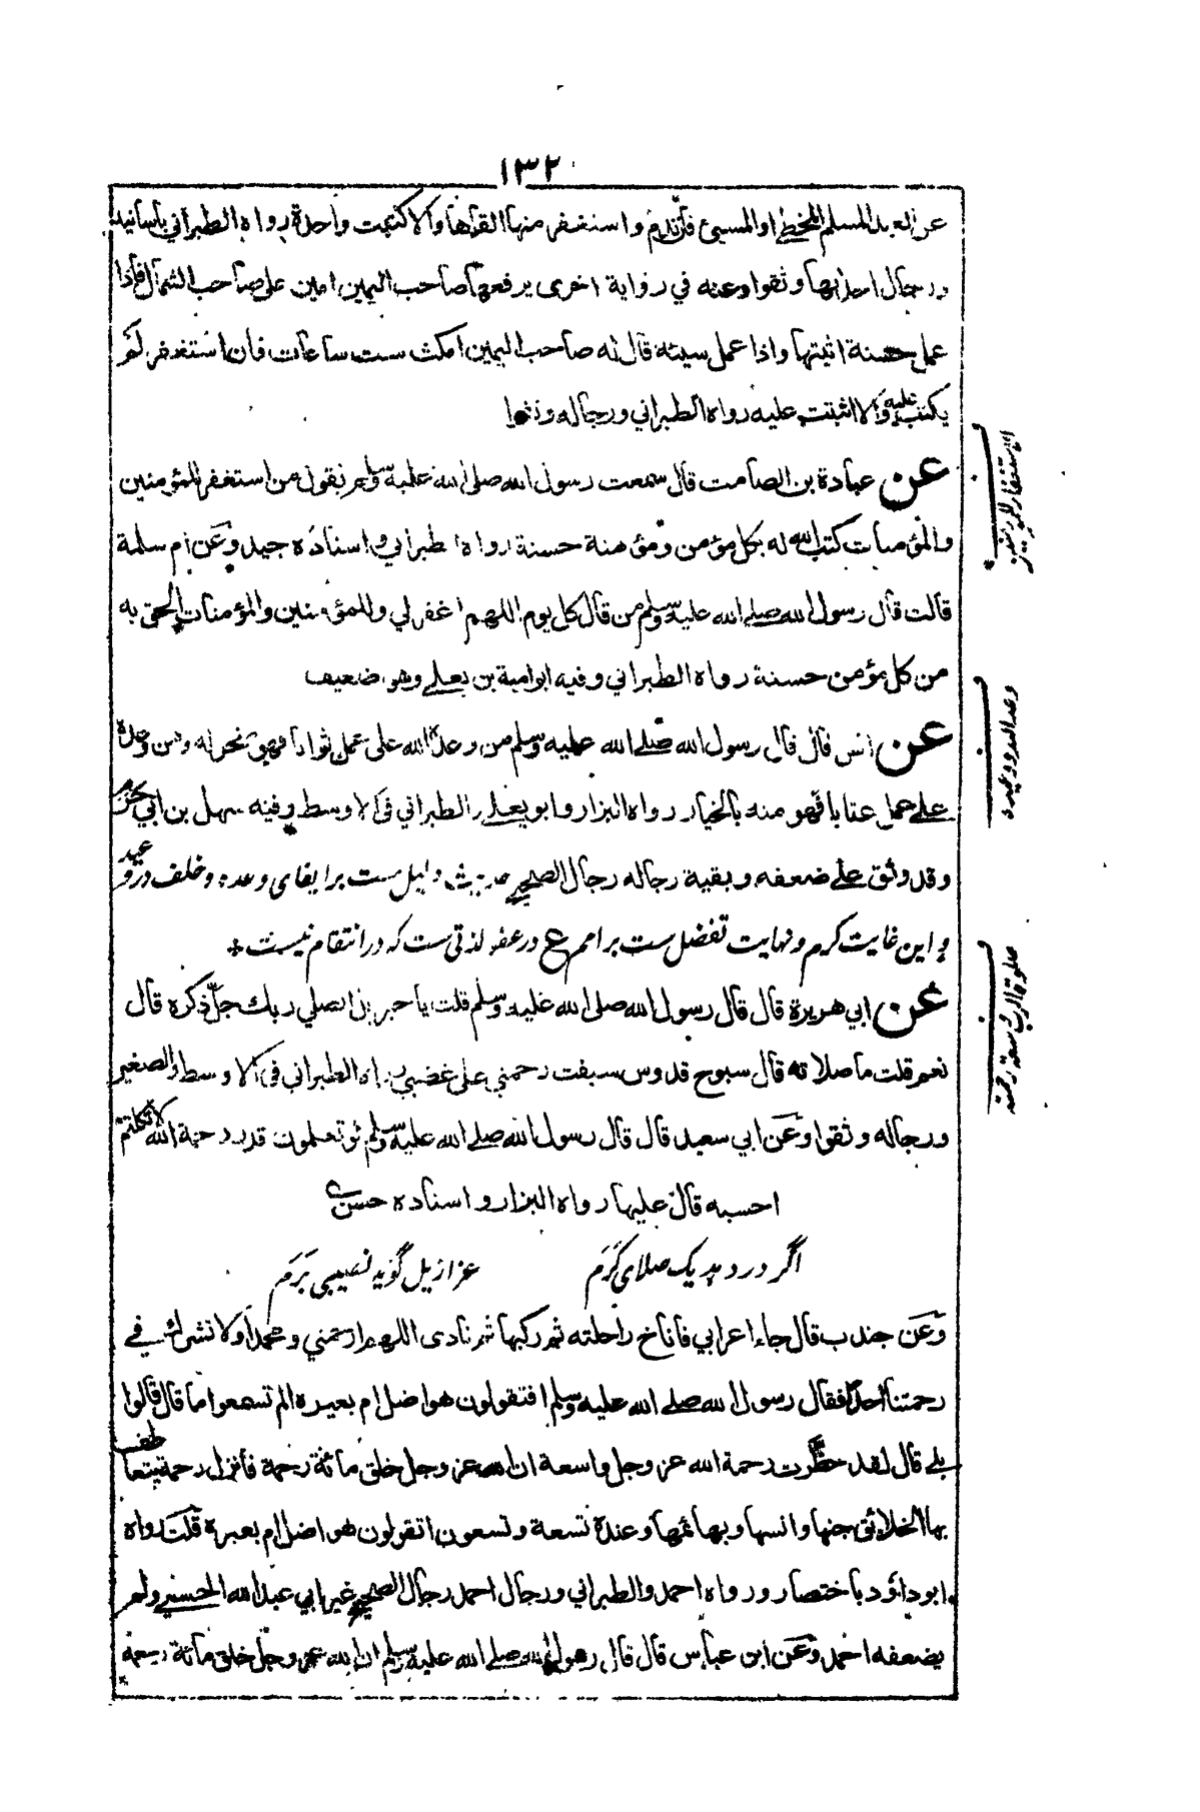 ١٣٢
عن العبد المسلم المخطئ او المسيئ فان ندم واستغفر منها القاها والا كتبت واحدة رواه الطبراني باسانيد
ورجال احدها وثقوا وعنه في رواية اخرى يرفعه صاحب اليمين امين على صاحب الشمال فاذا
عمل حسنة اثبتها واذا عمل سيئة قال له صاحب اليمين امكث ست ساعات فان استغفر لم
يكتب عليه والا اثبتت عليه رواه الطبراني ورجاله وثقوا
عن عبادة بن الصامت قال سمعت رسول الله صلى الله عليه وسلم يقول من استغفر للمؤمنين
والمؤمنات كتب الله له بكل مؤمن ومؤمنة حسنة رواه الطبراني واسناده جيد وعن ام سلمة
قالت قال رسول الله صلے الله عليه وسلم من قال كل يوم اللهم اغفر لي وللمؤمنين والمؤمنات الحق به
من كل مؤمن حسنة رواه الطبراني وفيه ابو امية بن يعلے وهو ضعيف
عن انس قال قال رسول الله صلے الله عليه وسلم من وعده الله على عمل ثوابا فهو منجز له ومن وعده
علے عمل عقابا فهو منه بالخيار رواه البزار وابو يعلے والطبراني فى الاوسط وفيه سهل بن ابي حزم
وقد وثق علے ضعفه وبقية رجاله رجال الصحيح حديث دليل ست بر ايفاى وعده وخلف در وعيد
و اين غايت كرم ونهايت تفضل ست بر امم ع در عفو لذتى ست كه در انتقام نيست +
عن ابي هريرة قال قال رسول الله صلى الله عليه وسلم قلت يا جبريل ايصلي ربك جل ذكره قال
نعم قلت ما صلاته قال سبوح قدوس سبقت رحمتي على غضبي رواه الطبراني فى الاوسط والصغير
ورجاله وثقوا وعن ابي سعيد قال قال رسول الله صلے الله عليه وسلم لو تعلمون قدر رحمة الله لاتكلتم
احسبه قال عليها رواه البزار واسناده حسن
اگر در دهد يك صلاى كرم عزازيل گويد نصيبى برم
وعن جندب قال جاء اعرابي فاناخ راحلته ثم ركبها ثم نادى اللهم ارحمني ومحمدا ولا تشرك في
رحمتنا احدا فقال رسول الله صلے الله عليه وسلم اتقولون هو اضل ام بعيره الم تسمعوا ما قال قالوا
بلے قال لقد حظرت رحمة الله عز وجل واسعة ان الله عز وجل خلق مائة رحمة فانزل رحمة يتعاطف
بها الخلائق جنها وانسها وبهائمها وعنده تسعة وتسعون اتقولون هو اضل ام بعيره قلت رواه
ابو داؤد باختصار ورواه احمد والطبراني ورجال احمد رجال الصحيح غير ابي عبد الله الحسني ولم
يضعفه احمد وعن ابن عباس قال قال رسول الله صلے الله عليه وسلم ان الله عز وجل خلق مائة رحمة
الاستغفار للمؤمنين
وعد الله ووعيده
صلوة الرب وسعة رحمته